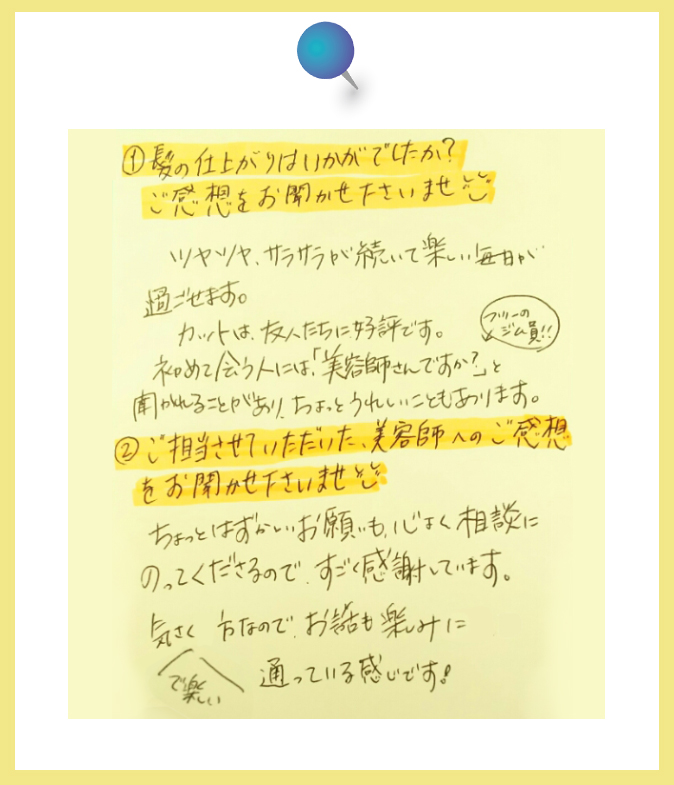 ①髪の仕上がりはいかがでしたか?
ご感想をお聞かせ下さいませ
ツヤツヤ、サラサラが続いて楽しい毎日が
過ごせます。
カットは、友人たちに好評です。
初めて会う人には、「美容師さんですか?」と
聞かれることがあり、ちょっとうれしいこともあります。
②ご担当させていただいた、美容師へのご感想
をお聞かせ下さいませ
ちょっとはずかしいお願いも、心よく相談に
のってくださるので、すごく感謝しています。
気さく で楽しい 方なので、お話も楽しみに
通っている感じです!